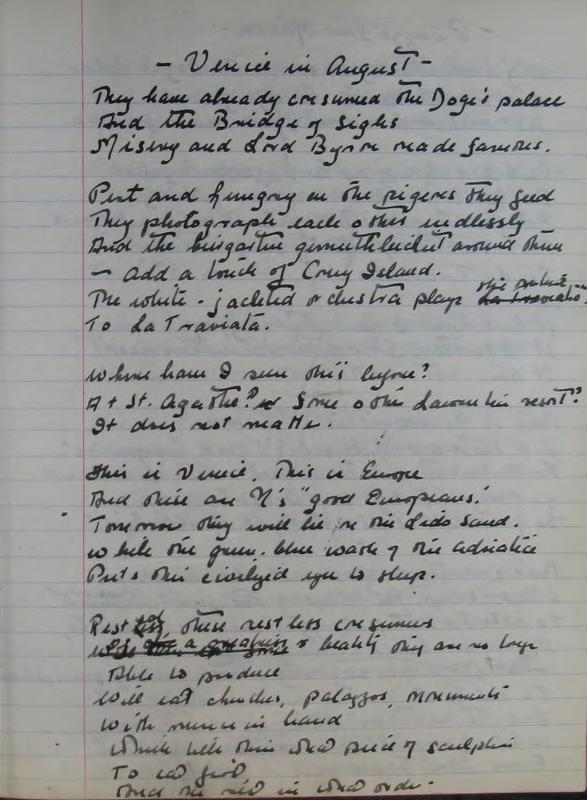 - Venice in August -
They have already consumed the Doge's palace
And the Bridge of Sighs
Misery and Lord Byron made famous.
Pert and hungry as the pigeons they feed
They photograph each other endlessly
And the around them
- Add a touch of Coney Island.
The white-jacketed orchestra plays the
To La Traviata.
Where have I seen this before?
At St. Agathe? or some other Laurentian resort?
It does not matter.
This is Venice. This is Europe
And these are N's "good Europeans".
Tomorrow they will lie on the Lido sand.
While the green-blue wash of the Adriatic
Puts their civilized eyes to sleep.
Rested these restless consumers
of beauty they are no longer
Able to produce
Will eat churches, palazzos, monuments
With menu in hand
Which tells them what piece of sculpture
To eat first
And the rest in what order.